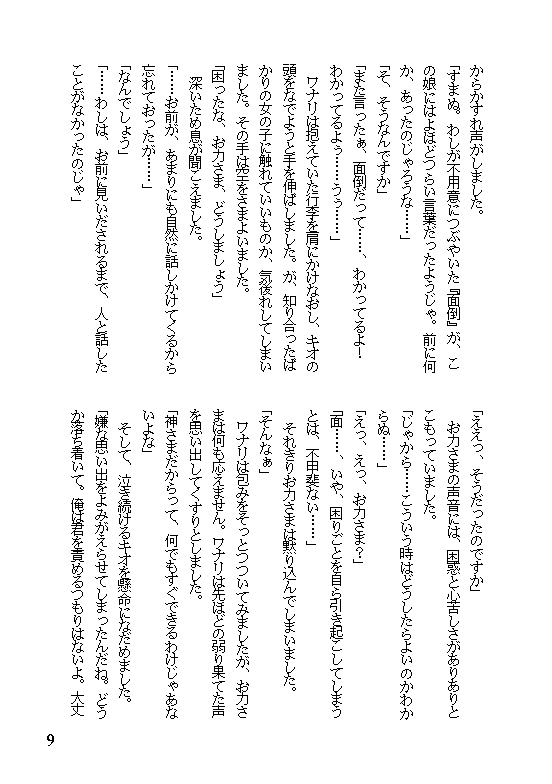 からかすれ声がしました。
「すまぬ。わしが不用意につぶやいた『面倒』が、こ
の娘にはよほどつらい言葉だったようじゃ。前に何
か、あったのじゃろうな……」
「そ、そうなんですか」
「また言ったぁ、面倒だって……、わかってるよ！
わかってるよぅ……うぅ……」
ワナリは抱えていた行李を肩にかけなおし、キオの
頭をなでようと手を伸ばしました。が、知り合ったば
かりの女の子に触れていいものか、気後れしてしまい
ました。その手は空をさまよいました。
「困ったな、お力さま、どうしましょう」
深いため息が聞こえました。
「……お前が、あまりにも自然に話しかけてくるから
忘れておったが……」
「なんでしょう」
「……わしは、お前に見いだされるまで、人と話した
ことがなかったのじゃ」
「ええっ、そうだったのですか」
お力さまの声音には、困惑と心苦しさがありありと
こもっていました。
「じゃから……こういう時はどうしたらよいのかわか
らぬ……」
「えっ、えっ、お力さま？」
「面……、いや、困りごとを自ら引き起こしてしまう
とは、不甲斐ない……」
それきりお力さまは黙り込んでしまいました。
「そんなぁ」
ワナリは包みをそっとつついてみましたが、お力さ
まは何も応えません。ワナリは先ほどの弱り果てた声
を思い出してくすりとしました。
「神さまだからって、何でもすぐできるわけじゃあな
いよな」
そして、泣き続けるキオを懸命になだめました。
「嫌な思い出をよみがえらせてしまったんだね。どう
か落ち着いて。俺は君を責めるつもりはないよ。大丈
9